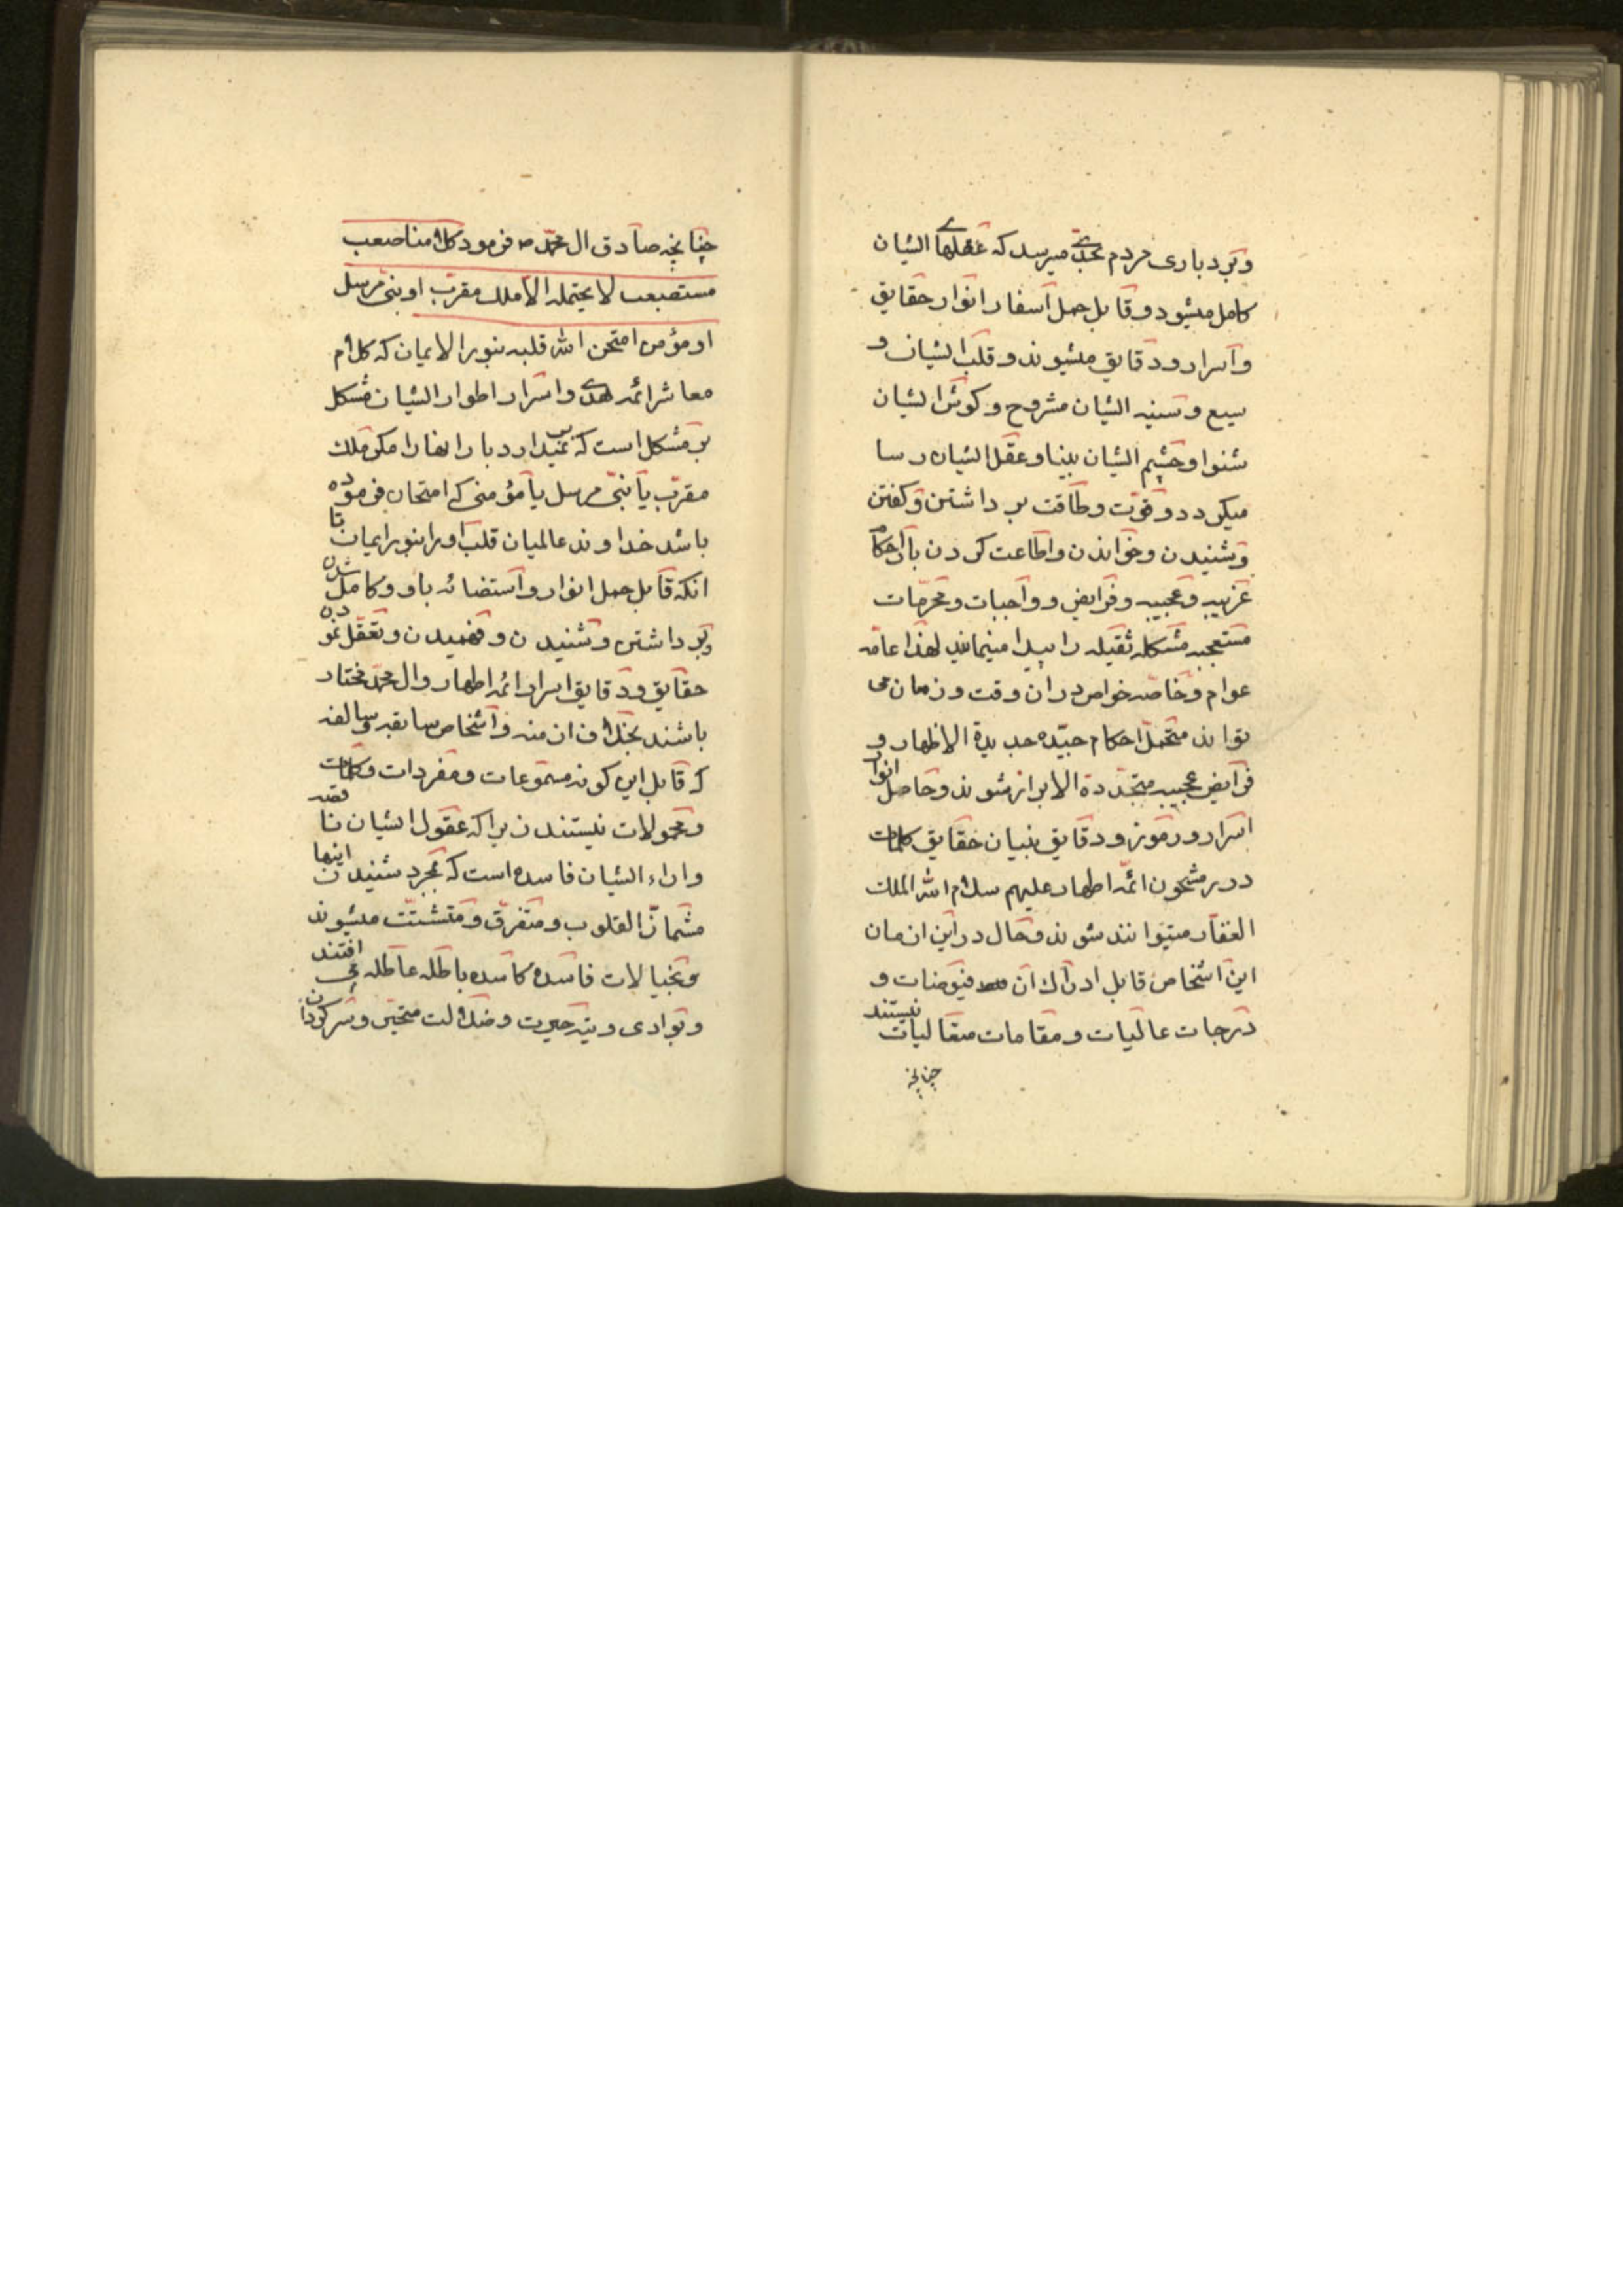 وبرد باری مردم بحدّی میرسد که عقلهای ایشان
کامل میشود و قابل حمل اسفار انوار حقایق
و اسرار و دقایق میشوند و قلب ایشان و
سیع و سینه ایشان مشروح و کوش ایشان
شنوا و چشم ایشان بینا و عقل ایشان رسا
میکردد و قوّت و طاقت بر داشتن و کفتن
و شنیدن و خواندن و اطاعت کردن بار احکام
غریبه و عجیبه و فرایض و واجبات و محرّمات
مستعجبه مشکله ثقیله را پیدا مینمایند لهذا عامّه
عوام و خاصّه خواص در ان وقت و زمان می
توانند متحمّل احکام جدیدة الاظهار و
فرایض عجیبه متجدّدة الابراز شوند و حامل انوار
اسرار و رموز و دقایق بنیان حقایق کلمات
درر مشحون ائمّه اطهار علیهم سلام الله الملک
الغفّار میتوانند شوند و حال در این ازمان
این اشخاص قابل ادراک آن فیوضات و
درجات عالیات و مقامات متعالیات نیستند
چنانچه
چنانچه صادق ال محمّد ص فرمود کلامنا صعب
مستصعب لا یحتمله الا ملک مقرّب او نبی مرسل
او مؤمن امتحن الله قلبه بنور الایمان که کلام
معاشر ائمّه هدی و اسرار اطوار ایشان مشکل
بر مشکل است که بر نمیدارد بار انها را مکر ملک
مقرّب یا نبیّ مرسل یا مؤمنی که امتحان فرموده
باشد خداوند عالمیان قلب او را بنور ایمان تا
انکه قابل حمل انوار و استضائه باو و کامل شدن
و بر داشتن و شنیدن و فهمیدن و تعقّل نمودن
حقایق و دقایق اسرار ائمّه اطهار و ال محمّد مختار
باشند بخلاف ازمنه و اشخاص سابقه و سالفه
که قابل این کونه مسموعات و مفردات و کلمات
و محمولات نیستند زیرا که عقول ایشان ناقصه
و اراء ایشان فاسده است که بمجرد شنیدن اینها
مشمأزّ القلوب و متفرّق و متشتّت میشوند
و بخیالات فاسده کاسده باطله عاطله می افتند
و بوادی و تیه حیرت و ضلالت متحیّر و سرکردان